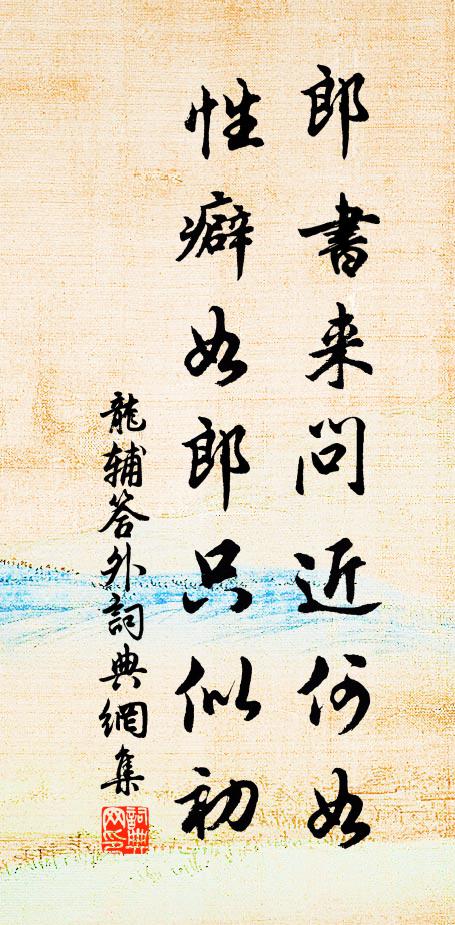 郎書来問近何如
性癖如郎只似初
龍辅答外詞典網集
詞典網印